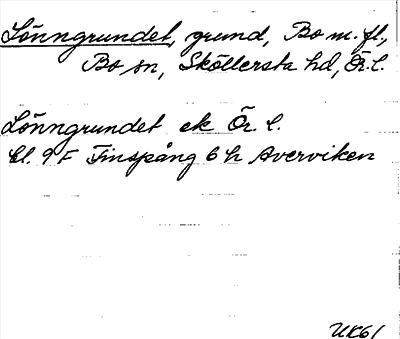 Lönngrundet, grund, Bo m. fl.,
Bo sn, Sköllersta hd, Ör. l.
Lönngrundet ek Ör. l.
bl. 9 F Finspång 6 h Averviken
UK61